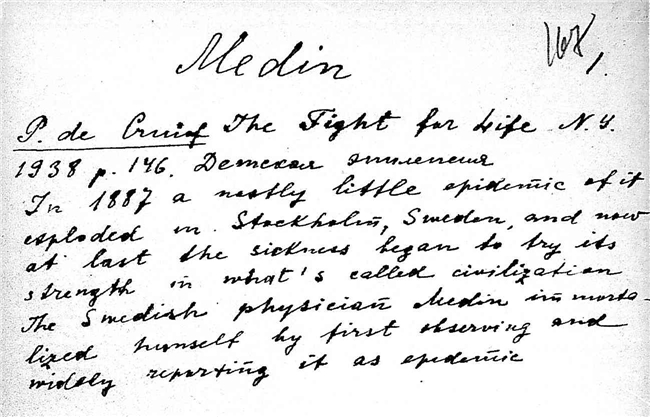 Medin
168,
P. de Cruif The Fight for Life N.Y.
1938 p. 146. Детская эпилепсия
In 1887 a nastly little epidemic of it
exploded in Stockholm, Sweden, and now
at last the sickness began to try its
strength in what's called civilization
The Swedish physician Medin immorta-
lized himself by first observing and
widely reporting it as epedemic